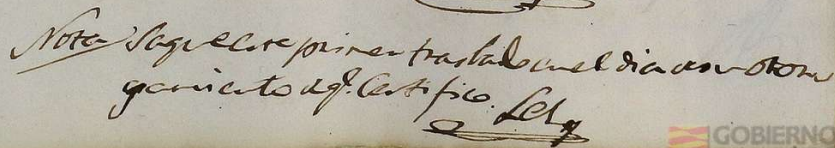 Nota Saque este primer traslado en el dia de su otorga
gamiento de q.e Certifico.
GOBIERNO